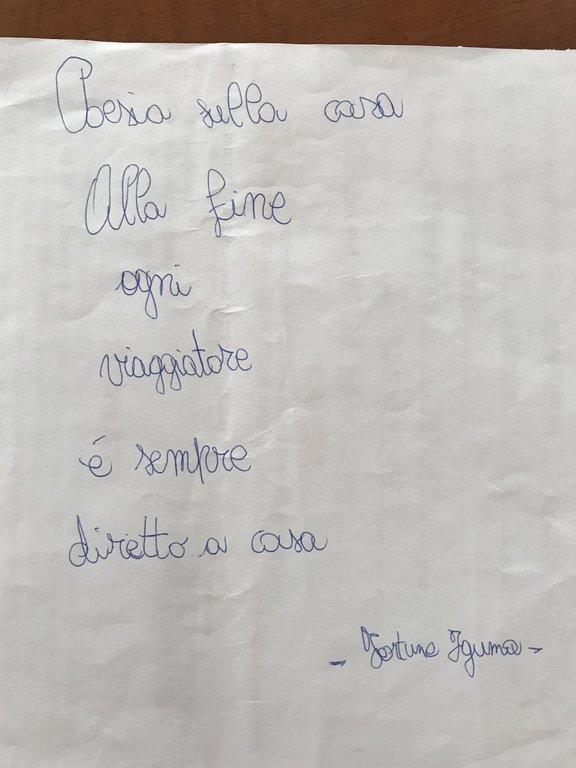 Poesia sulla casa
Alla fine
ogni
viaggiatore
é sempre
diretto a casa
- Fortune Igumae -